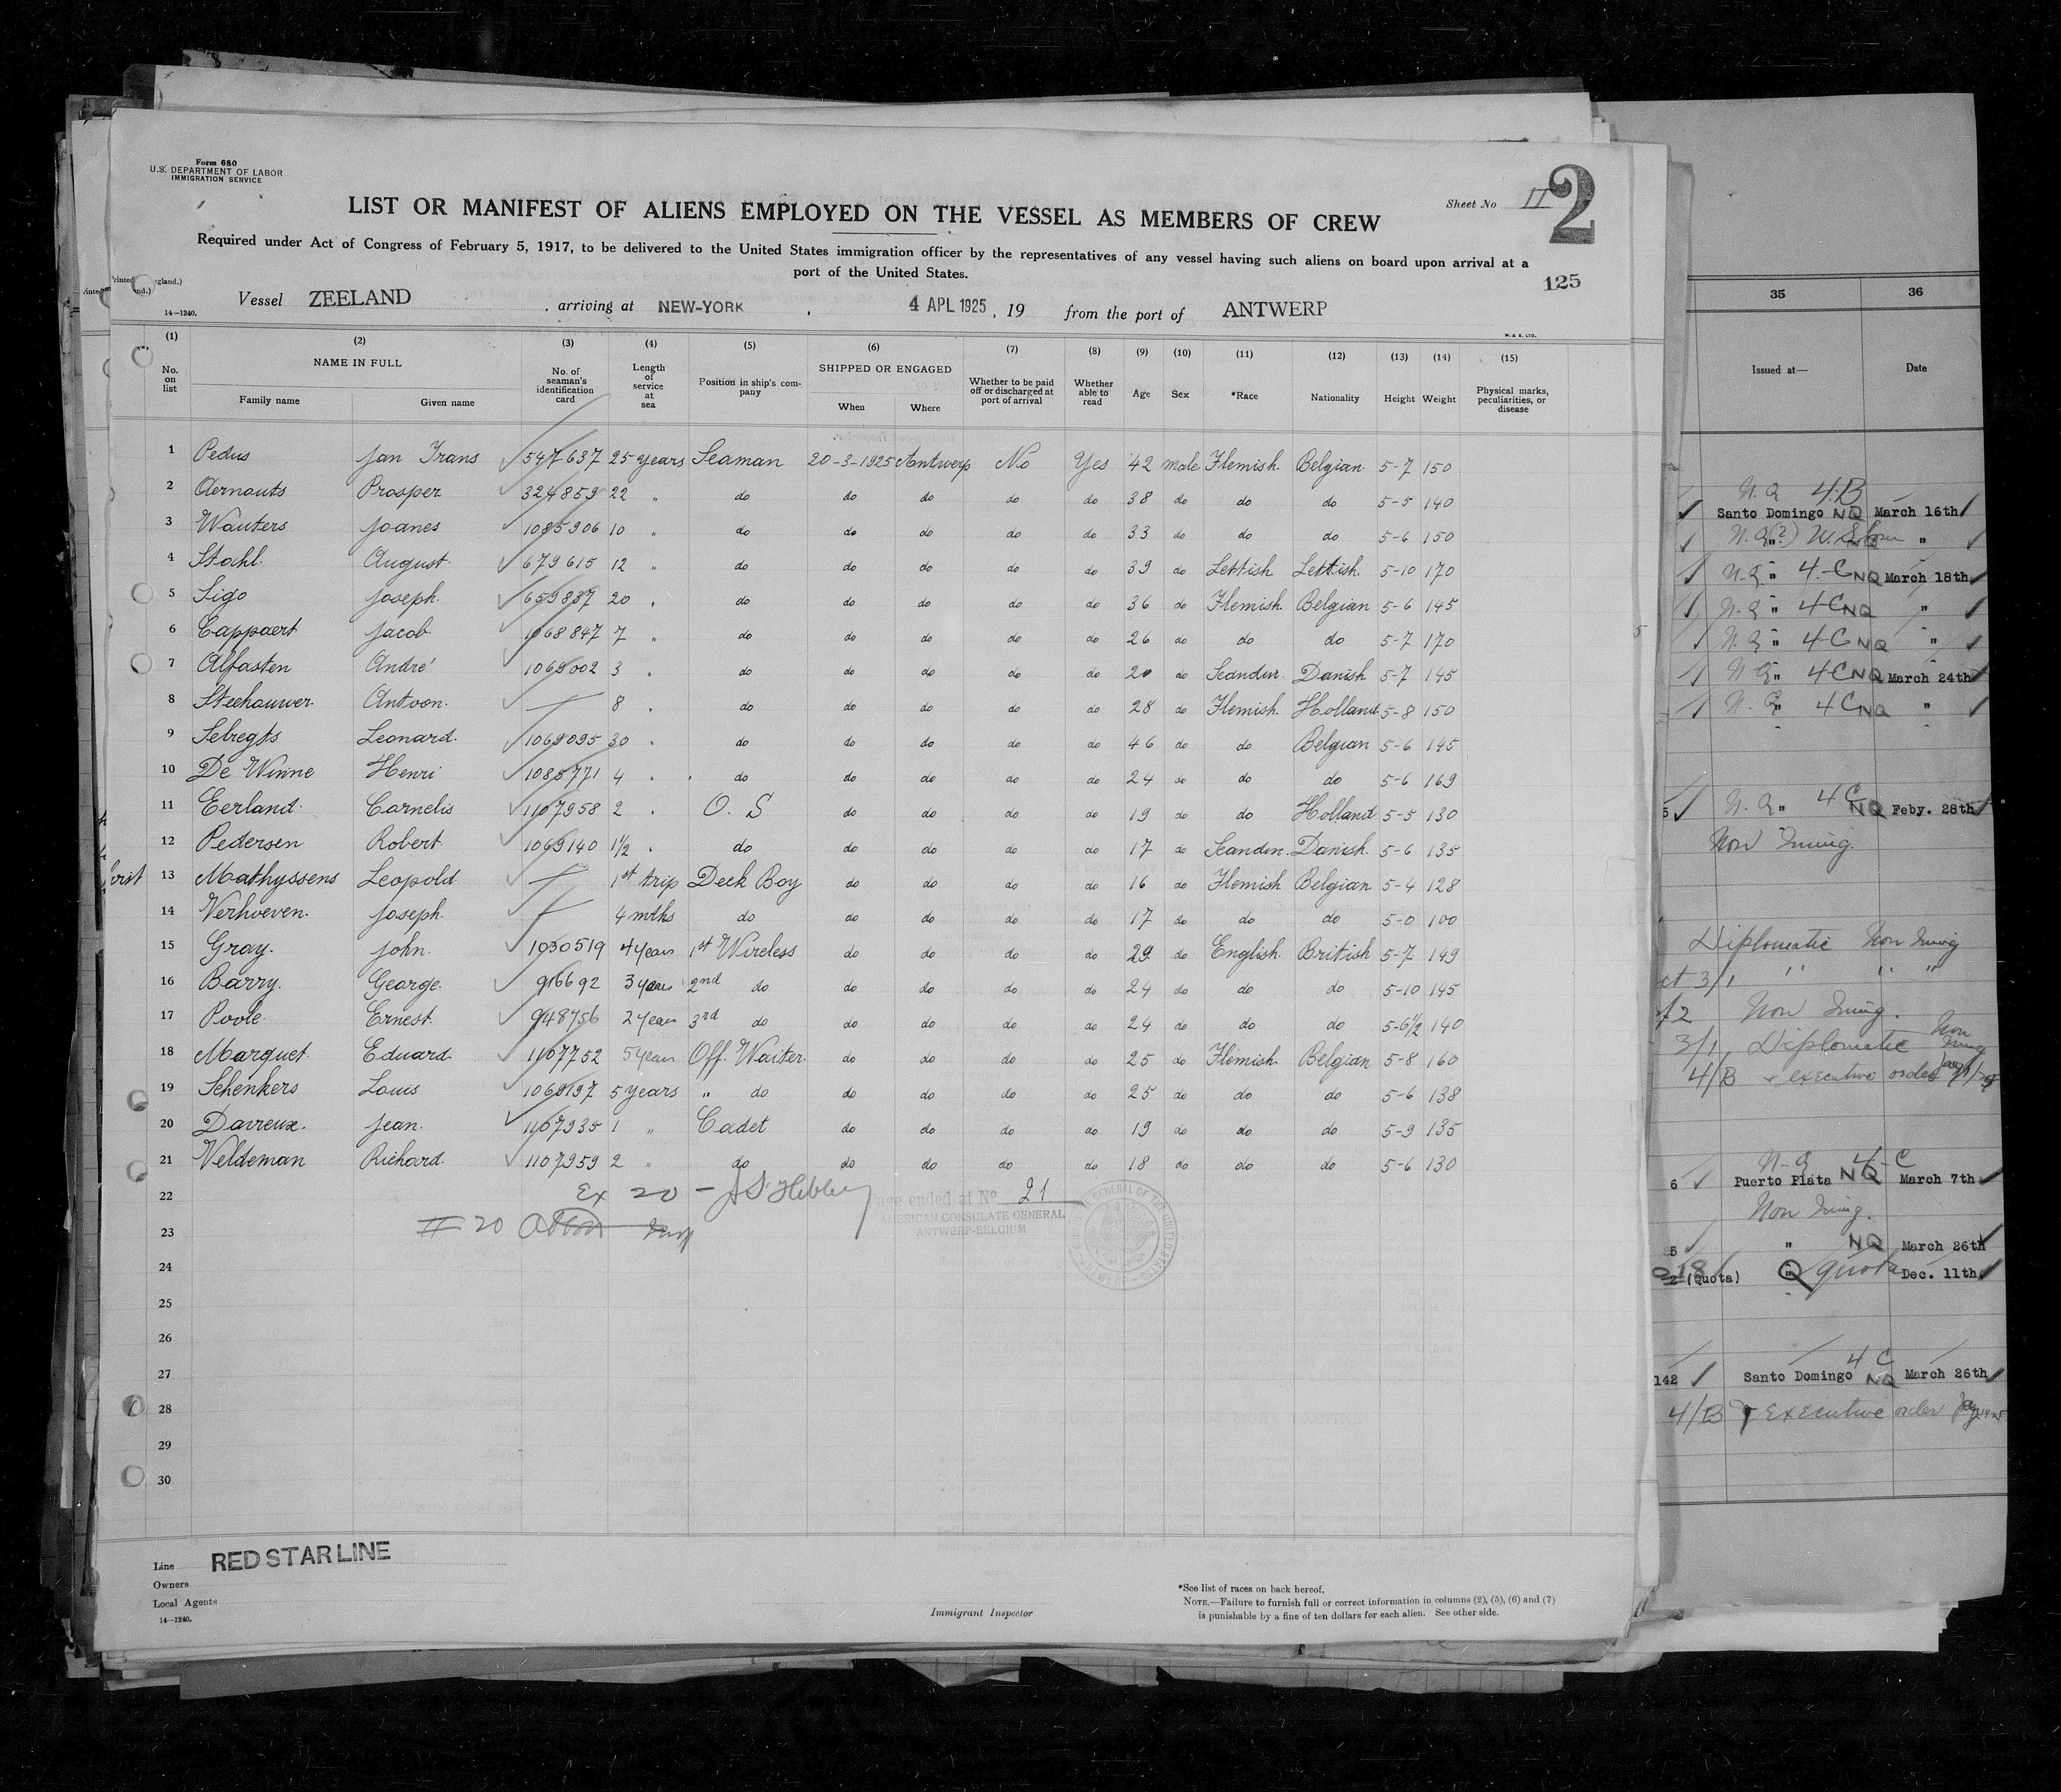 Form 680
U.S. DEPARTMENT OF LABOR
IMMIGRATION SERVICE
Sheet No II
2
LIST OR MANIFEST OF ALIENS EMPLOYED ON THE VESSEL AS MEMBERS OF CREW
Required under Act of Congress of February 5, 1917, to be delivered to the United States immigration officer by the representatives of any vessel having such aliens on board upon arrival at a
port of the United States.
125
Vessel ZEELAND, arriving at NEW-YORK, 4 APL 1925, 19 from the port of ANTWERP
14—1240.
W. & S. LTD.
(1) (2) (3) (4) (5) (6) (7) (8) (9) (10) (11) (12) (13) (14) (15)
No. on list NAME IN FULL Family name Given name No. of seaman's identification card Length of service at sea Position in ship's company SHIPPED OR ENGAGED When Where Whether to be paid off or discharged at port of arrival Whether able to read Age Sex *Race Nationality Height Weight Physical marks, peculiarities, or disease
1 Pedus Jan Frans 547637 25 years Seaman 20-3-1925 Antwerp No Yes 42 male Flemish Belgian 5-7 150
2 Aernouts Prosper 324859 22 " do do do do do 38 do do do 5-5 140
3 Wauters Joanes 1085906 10 " do do do do do 33 do do do 5-6 150
4 Stahl August 679615 12 " do do do do do 39 do Lettish Lettish 5-10 170
5 Sigo Joseph 659837 20 " do do do do do 36 do Flemish Belgian 5-6 145
6 Cappaert Jacob 1068847 7 " do do do do do 26 do do do 5-7 170
7 Alfasten André 1069002 3 " do do do do do 20 do Scandin. Danish 5-7 145
8 Steehouwer Antoon — 8 " do do do do do 28 do Flemish Holland 5-8 150
9 Sebregts Leonard 1069095 30 " do do do do do 46 do do Belgian 5-6 145
10 De Winne Henri 1085771 4 " do do do do do 24 do do do 5-6 169
11 Eerland Cornelis 1107958 2 " O. S do do do do 19 do do Holland 5-5 130
12 Pedersen Robert 1069140 1½ " do do do do do 17 do Scandin. Danish 5-6 135
13 Mathyssens Leopold — 1st trip Deck Boy do do do do 16 do Flemish Belgian 5-4 128
14 Verhoeven Joseph — 4 mths do do do do do 17 do do do 5-0 100
15 Gray John 1030519 4 years 1st Wireless do do do do 29 do English British 5-7 149
16 Barry George 916692 3 years 2nd do do do do do 24 do do do 5-10 145
17 Poole Ernest 948756 2 years 3rd do do do do do 24 do do do 5-6½ 140
18 Marquet Eduard 1107752 5 years Off. Waiter do do do do 25 do Flemish Belgian 5-8 160
19 Schenkers Louis 1069197 5 years " do do do do do 25 do do do 5-6 138
20 Davreux Jean 1107935 1 " Cadet do do do do 19 do do do 5-9 135
21 Veldeman Richard 1107959 2 " do do do do do 18 do do do 5-6 130
22
Ex 20 —
Page ended at No 21
AMERICAN CONSULATE GENERAL
ANTWERP-BELGIUM
23
# 20
24
25
26
27
28
29
30
Line RED STAR LINE
Owners
Local Agents
14—1240.
Immigrant Inspector
*See list of races on back hereof.
NOTE.—Failure to furnish full or correct information in columns (2), (5), (6) and (7)
is punishable by a fine of ten dollars for each alien. See other side.
35 36
Issued at— Date
N.Q 4-B
Santo Domingo NQ March 16th
" NQ "
N.Q " 4-C NQ March 18th
N.Q " 4C NQ "
N.Q " 4C NQ "
N.Q " 4C NQ March 24th
N.Q " 4C NQ "
5 N.Q " 4C NQ Feby. 28th
Non Immig.
Diplomatic Non Immig
3/1 " " "
Non Immig.
3/1, Diplomatic Non Immig
4/B executive order
N-Q 4-C
6 Puerto Plata NQ March 7th
Non Immig.
" NQ March 26th
(Quota) " Q quota Dec. 11th
4 C
142 Santo Domingo NQ March 26th
4/B executive order